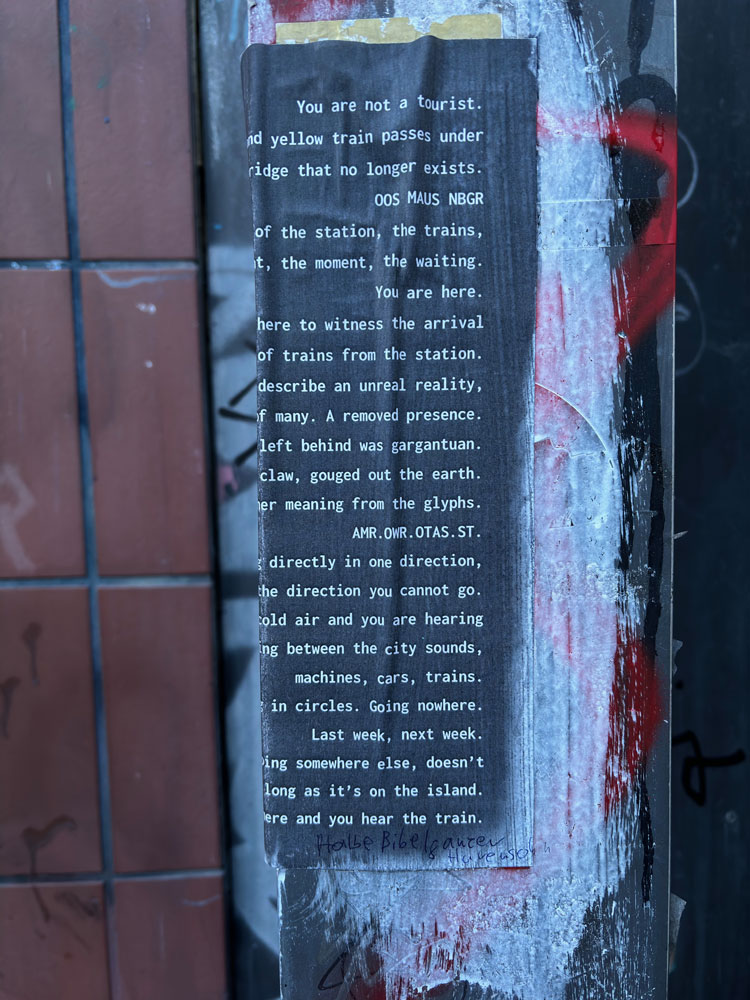 You are not a tourist.
nd yellow train passes under
ridge that no longer exists.
OOS MAUS NBGR
of the station, the trains,
t, the moment, the waiting.
You are here.
here to witness the arrival
of trains from the station.
describe an unreal reality,
of many. A removed presence.
left behind was gargantuan.
claw, gouged out the earth.
her meaning from the glyphs.
AMR.OWR.OTAS.ST.
g directly in one direction,
the direction you cannot go.
cold air and you are hearing
ing between the city sounds,
machines, cars, trains.
g in circles. Going nowhere.
Last week, next week.
ping somewhere else, doesn't
long as it's on the island.
ere and you hear the train.
Halbe Bibel ganzer